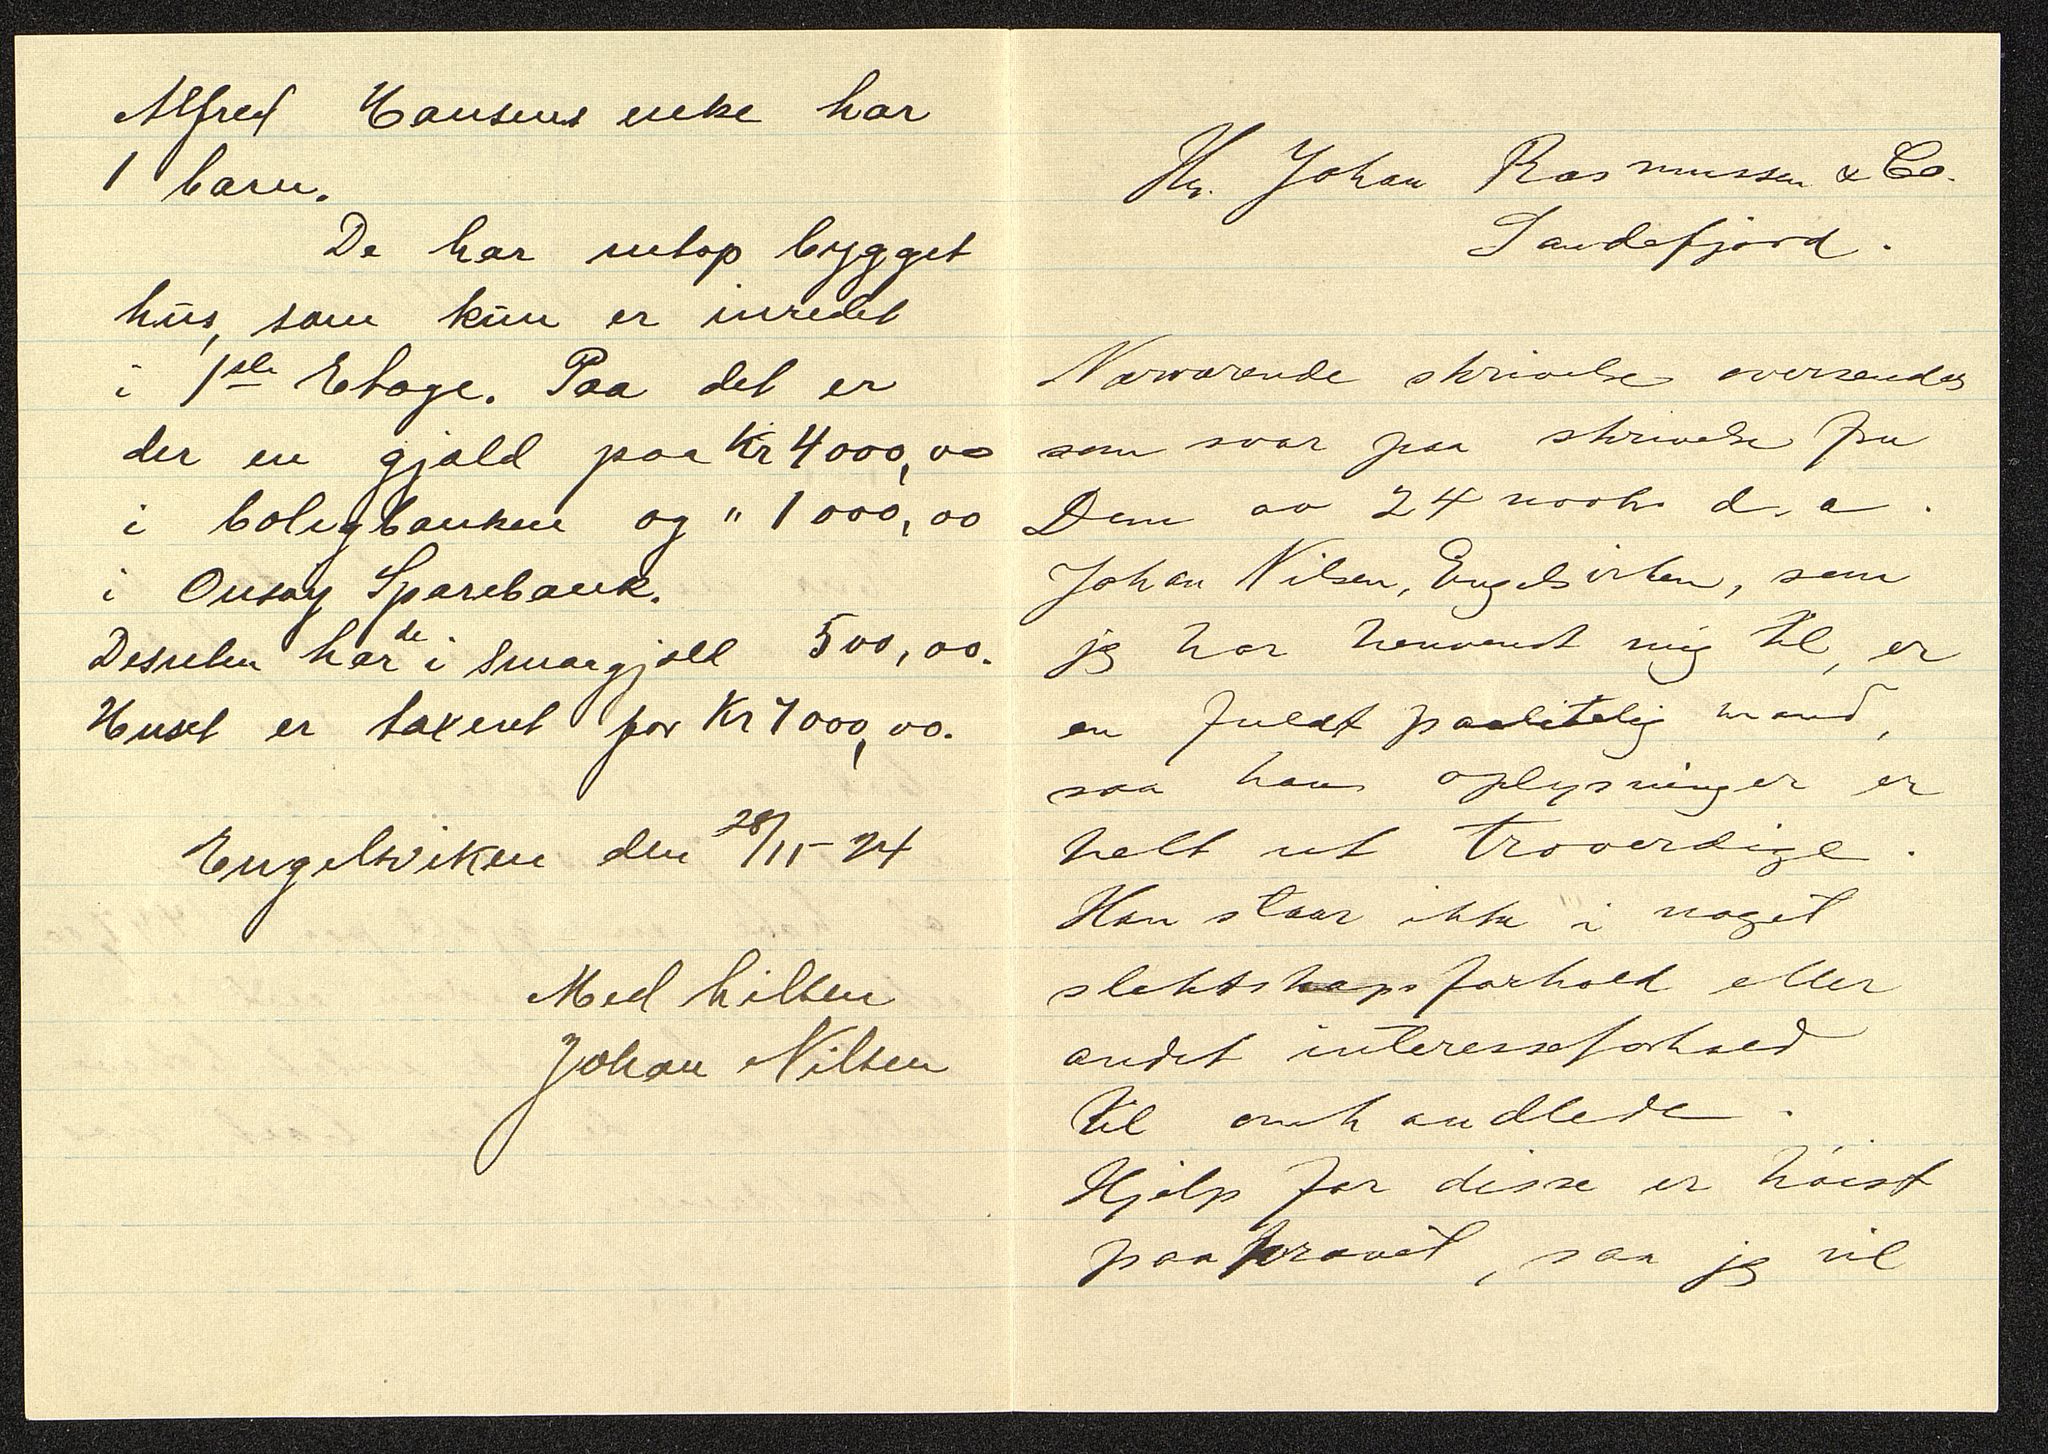 Alfred Hansens enke har
1 barn.
De har netop bygget
hus, som kun er inredet
i 1ste Etage. Paa det er
der en gjæld paa Kr 4000,00
i boligbanken og " 1000,00
i Onsøy Sparebank.
Desuten har de i smaagjæld 500,00.
Huset er taxeret for Kr 7000,00.
Engelsviken den 28/11-24
Med hilsen
Johan Nilsen
Hr. Johan Rasmussen & Co.
Sandefjord.
Nærværende skrivelse oversendes
som svar paa skrivelse fra
Dem av 24 novbr d. a.
Johan Nilsen, Engelsviken, som
jeg har henvendt mig til, er
en fuldt paalitelig mand,
saa hans oplysninger er
helt ut troverdige.
Han staar ikke i noget
slektskapsforhold eller
andet interesseforhold
til omhandlede.
Hjelp for disse er høist
paakrævet, saa jeg vil